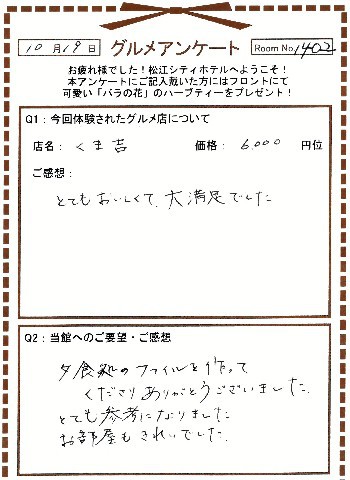 10月19日 グルメアンケート Room No. 1402
お疲れ様でした！松江シティホテルへようこそ！
本アンケートにご記入戴いた方にはフロントにて
可愛い「バラの花」のハーブティーをプレゼント！
Q1：今回体験されたグルメ店について
店名： くま吉 価格： 6,000 円位
ご感想：
とてもおいしくて、大満足でした
Q2：当館へのご要望・ご感想
夕食処のファイルを作って
くださりありがとうございました。
とても参考になりました
お部屋もきれいでした。